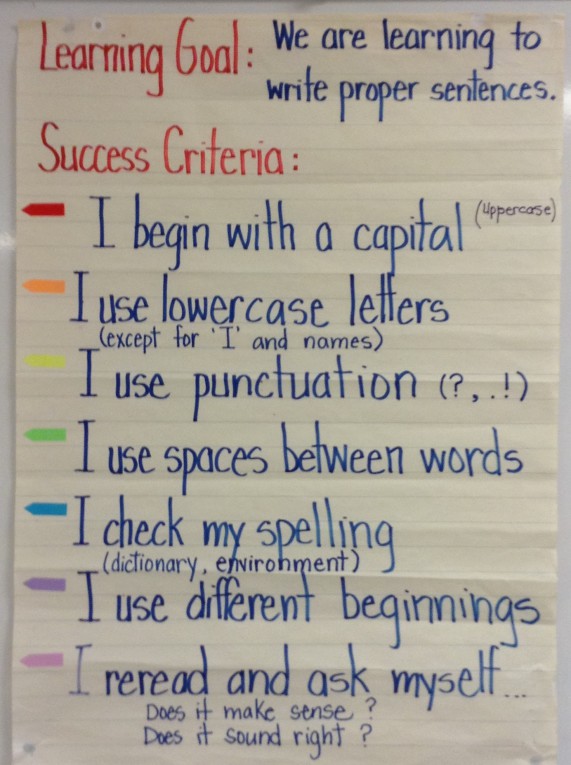 Learning Goal: We are learning to
write proper sentences.
Success Criteria:
I begin with a capital (uppercase)
I use lowercase letters
(except for 'I' and names)
I use punctuation (?,.!)
I use spaces between words
I check my spelling
(dictionary, environment)
I use different beginnings
I reread and ask myself...
Does it make sense?
Does it sound right?